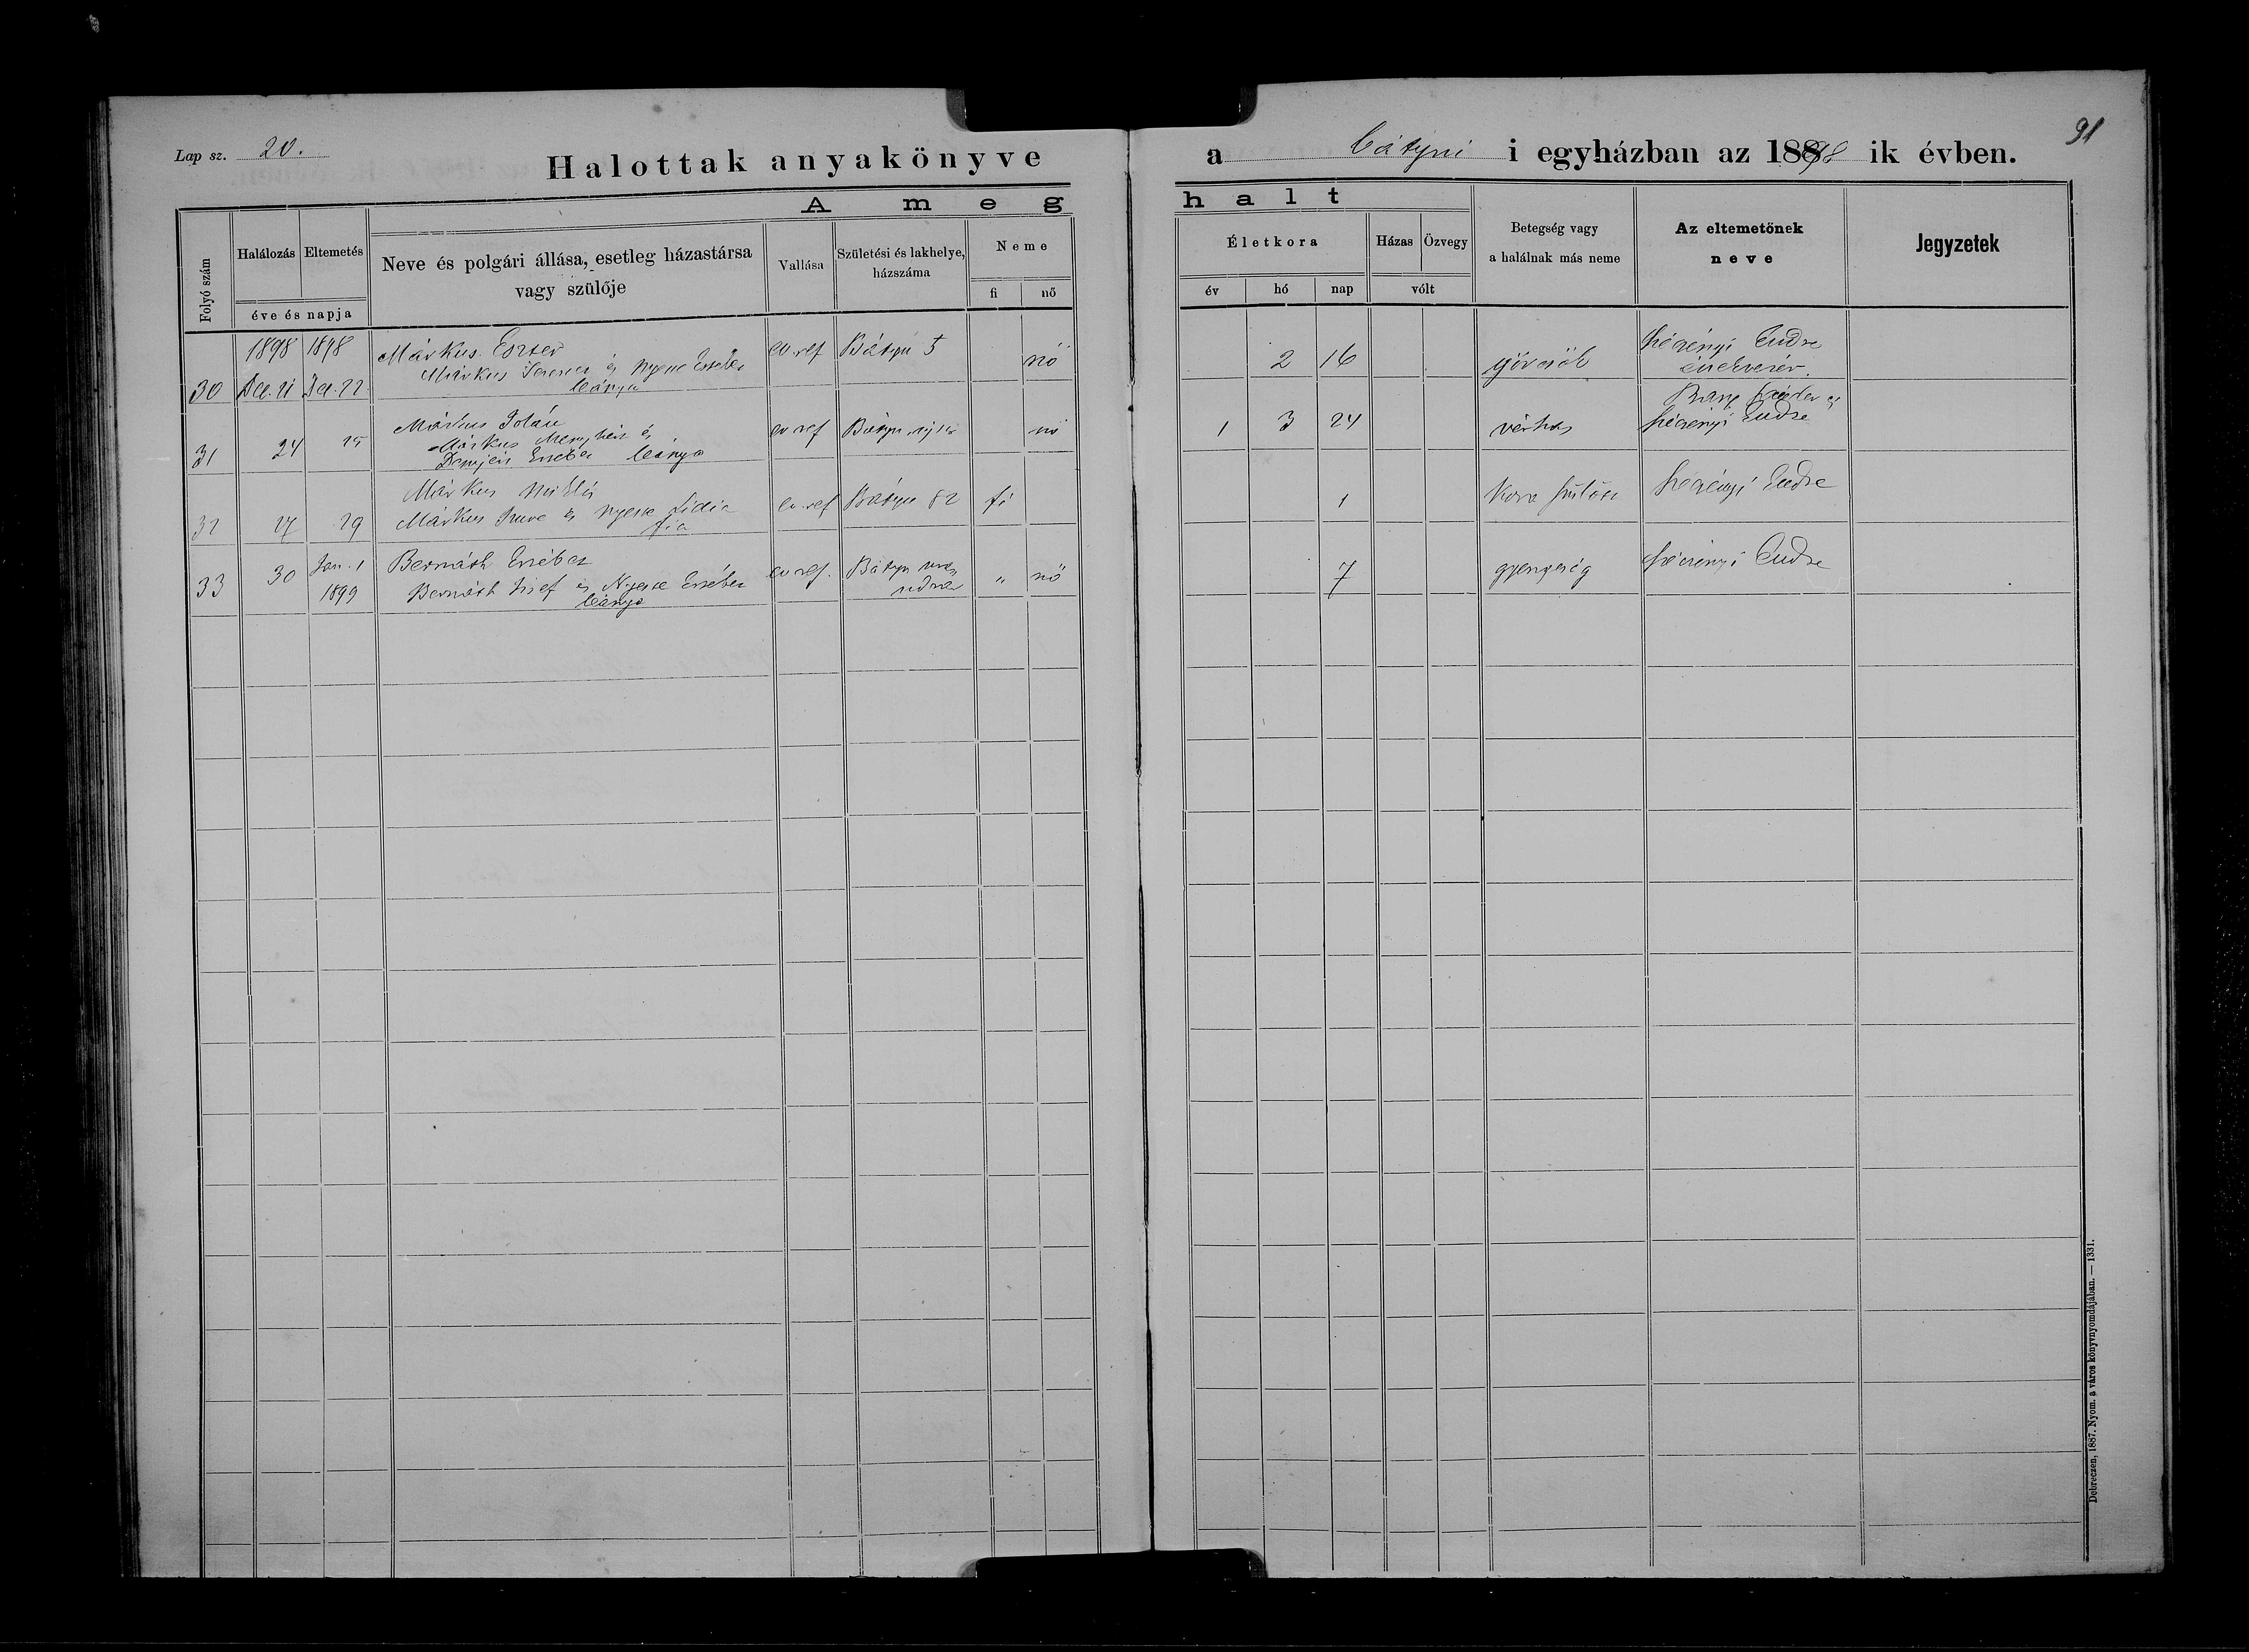 Lap sz. 20.
Halottak anyakönyve
a bátyui i egyházban az 1898 ik évben.
91
A meg
halt
Folyó szám
Halálozás
Eltemetés
éve és napja
Neve és polgári állása, esetleg házastársa
vagy szülője
Vallása
Születési és lakhelye,
házszáma
Neme
fi
nő
Életkora
év
hó
nap
Házas
Özvegy
vólt
Betegség vagy
a halálnak más neme
Az eltemetőnek
neve
Jegyzetek
1898 1898
30 Dec. 21 Dec. 22.
Márkus Eszter
Márkus Ferencz és Nyeste Erzsébet
leánya
ev. ref Bátyu 5 nő
2 16 görcsök
Endre
31 24 25
Márkus Zolán
Márkus Menyhért és
Demjén Erzsébet leánya
ev ref Bátyu nő
1 3 24 vérhas
és
Endre
32 27 29
Márkus Miklós
Márkus Imre és Nyeste Lidia
fia
ev. ref Bátyu 82 fi
1 Kora szülött
Endre
33 30 Jan. 1
1899
Bernáth Erzsébet
Bernáth József és Nyeste Erzsébet
leánya
ev ref. Bátyu
" nő
7 gyengeség
Endre
Debreczen, 1887. Nyom. a város könyvnyomdájában. — 1331.